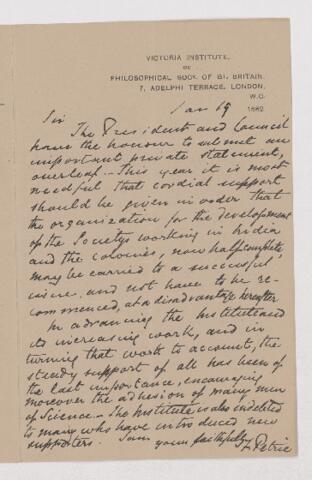 VICTORIA INSTITUTE,
OR
PHILOSOPHICAL SOCY OF GT. BRITAIN.
7, ADELPHI TERRACE, LONDON,
W.C.
Jan 19 1882
Sir
The President and Council
have the honour to submit an
important private statement,
overleaf – This year it is most
needful that cordial support
should be given in order that
the organization for the development
of the Society's working in India
and the colonies, now half complete,
may be carried to a successful
issue, and not have to be re-
commenced, at a disadvantage hereafter
In advancing the Institute and
its increasing work, and in
turning that work to account, the
steady support of all has been of
the last importance, encouraging
moreover the adhesion of many men
of Science – The Institute is also indebted
to many who have introduced new
supporters. I am
yours faithfully
F Petrie